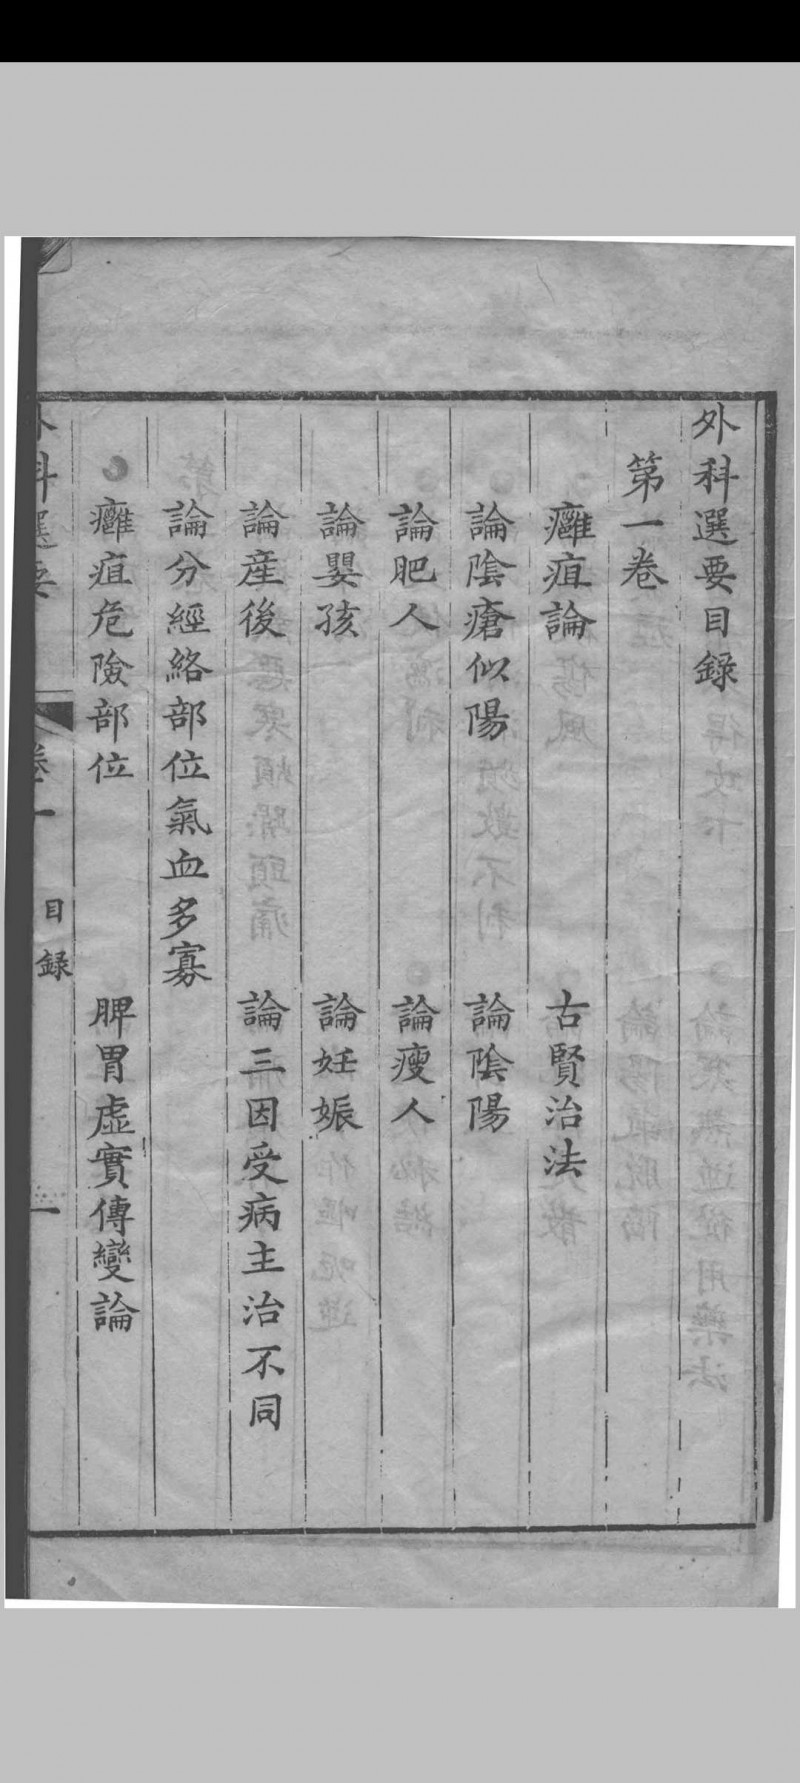 外科選要目錄
第一卷
癰疽論 古賢治法
論陰瘡似陽 論陰陽
論肥人 論瘦人
論嬰孩 論妊娠
論產後 論三因受病主治不同
論分經絡部位氣血多寡
癰疽危險部位 脾胃虛實傳變論
外科選要 卷一 目錄 一